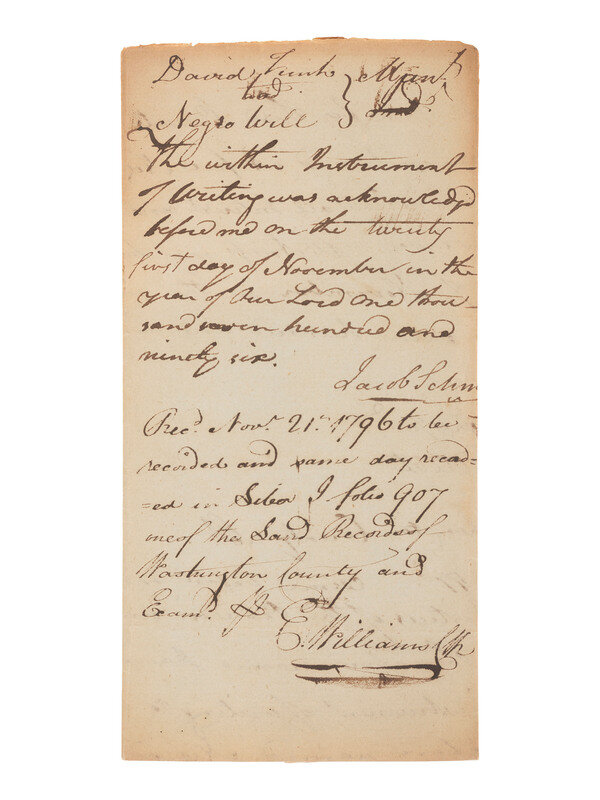 David Funk
and } Man.t
Negro Will
The within Instrument
of Writing was acknowledgd
before me on the twenty
first day of November in the
year of Our Lord One thou
sand seven hundred and
ninety six.
Jacob Schn
Rec.d Nov.r 21.st 1796 to be
recorded and same day record=
=ed in Liber J folio 907
one of the Land Records of
Washington County and
Exam.d
E. Williams Clk